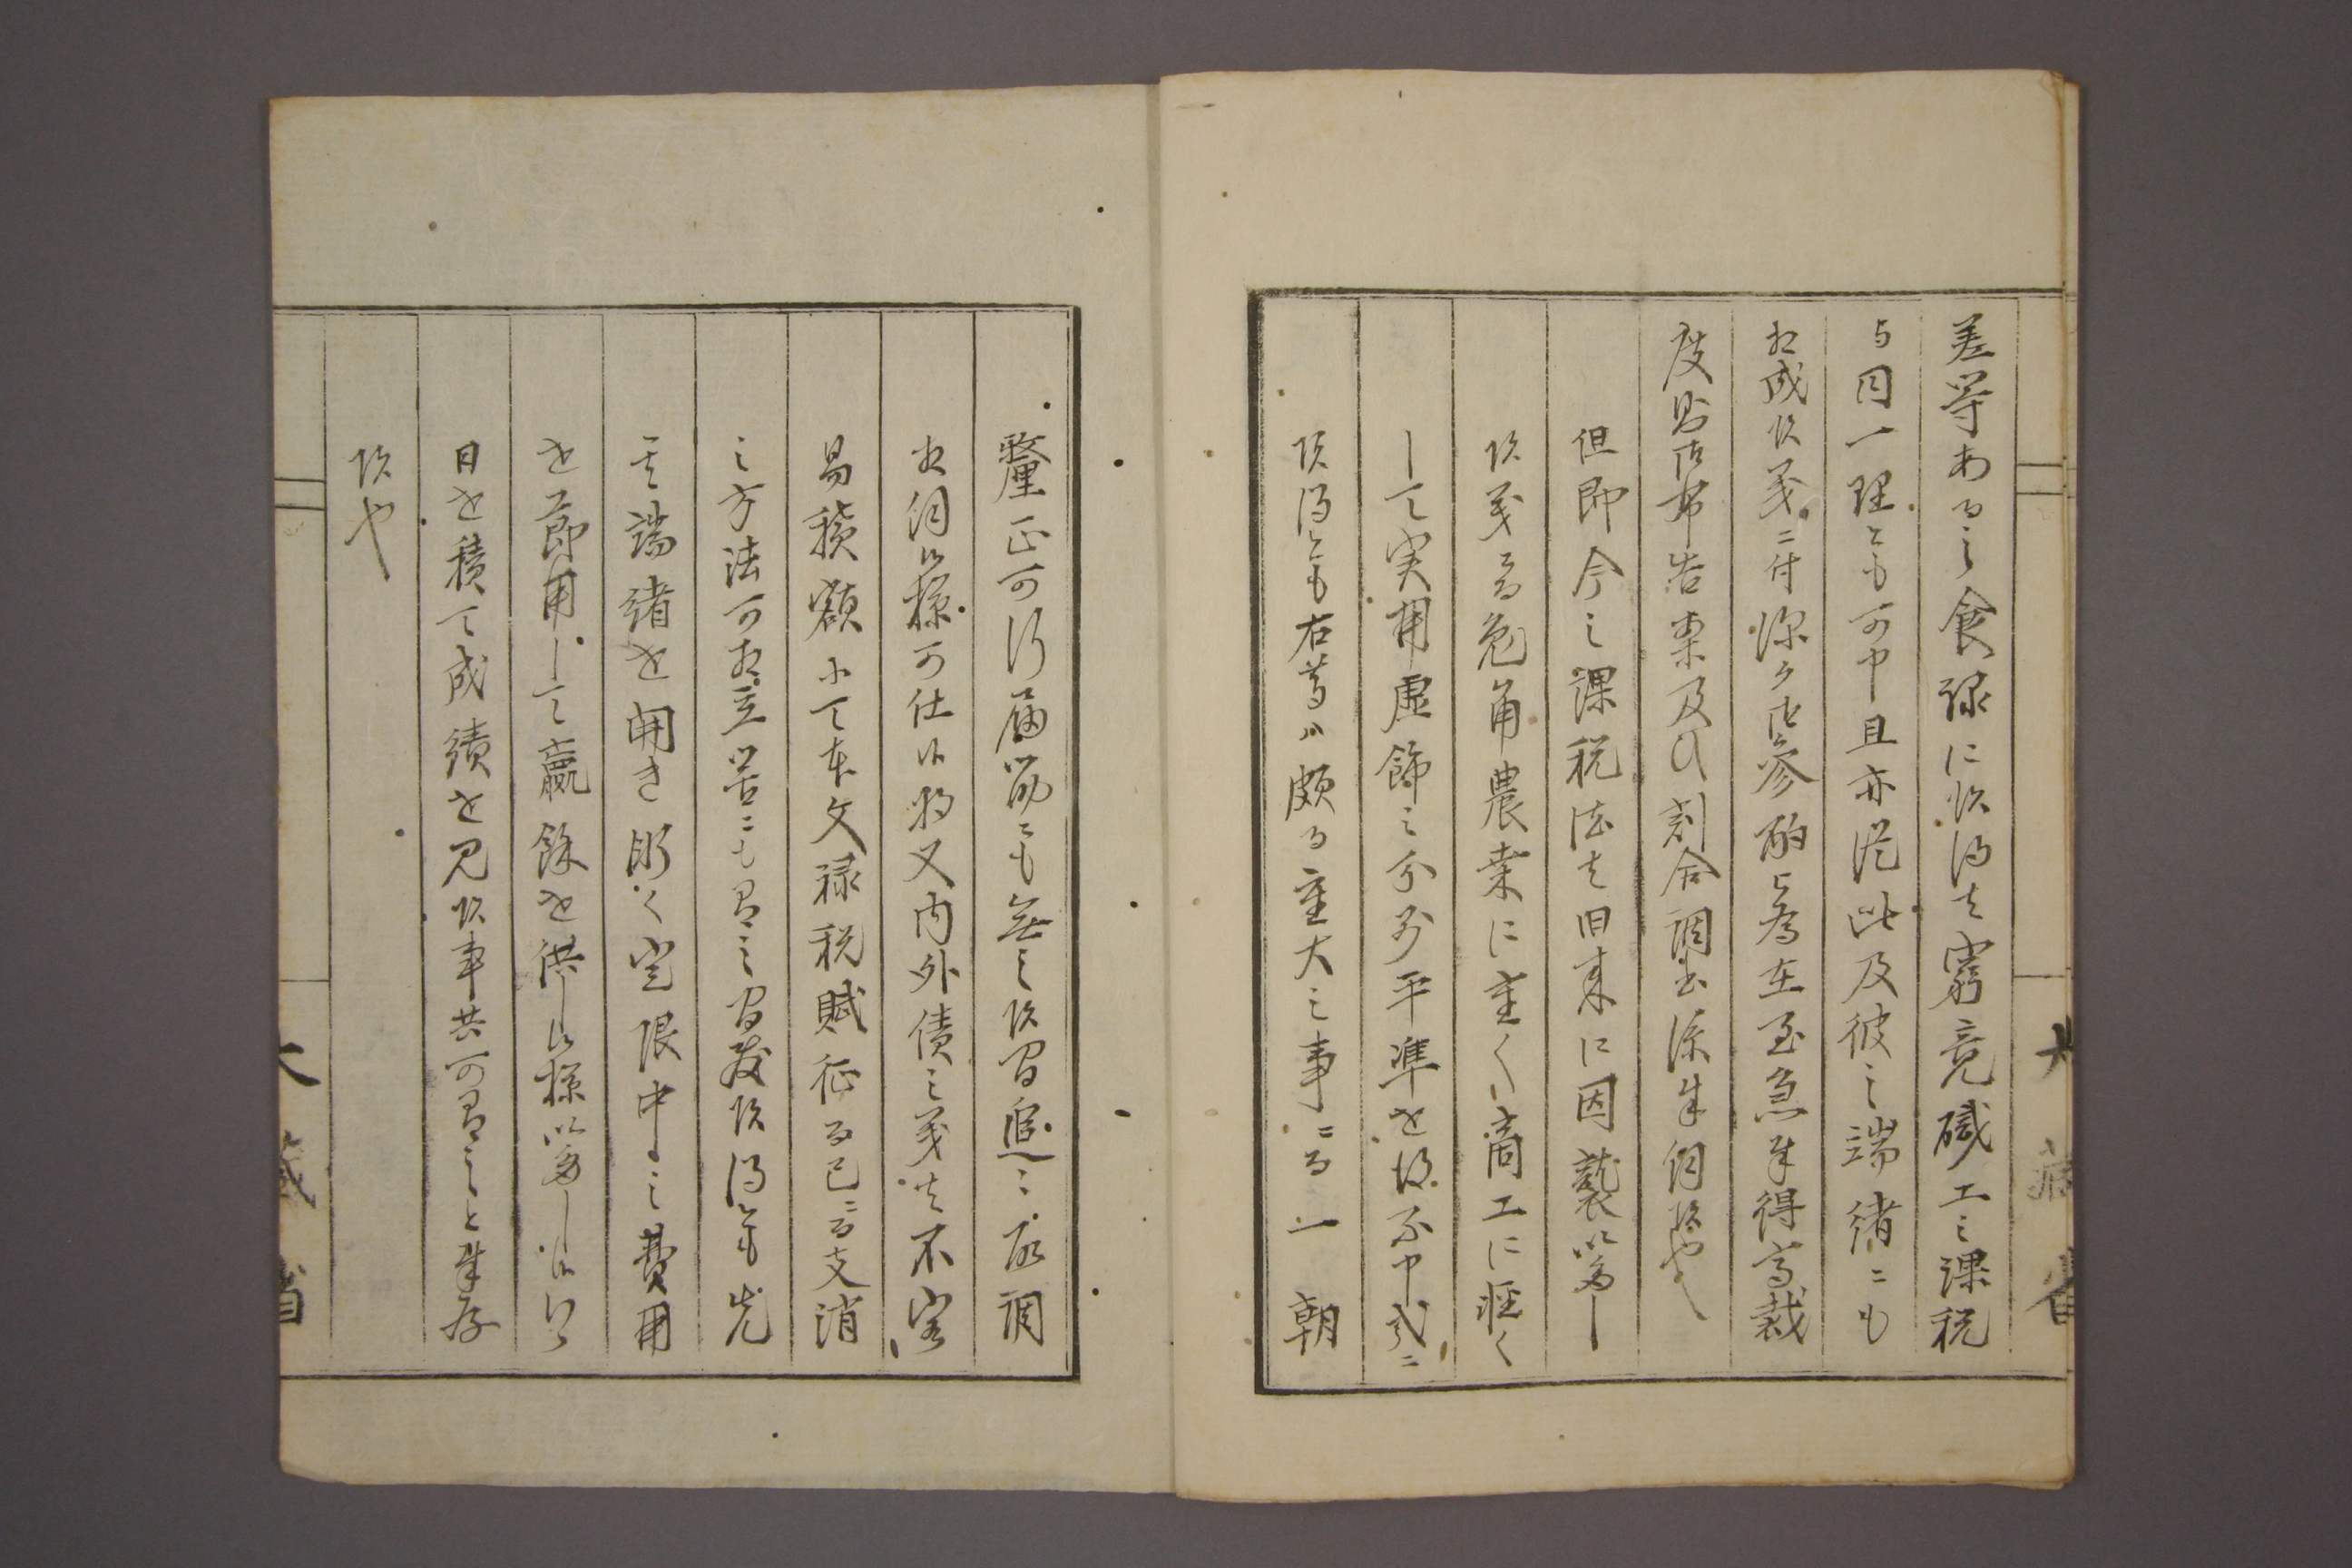 差等あるも之食禄に候得者窮竟職工之課税
与同一理とも可申且亦従此及彼之端緒ニも
相成候義ニ付深ク御参酌被為在至急年得高裁
度則御布告案及ひ割合調書添奉伺候也
但即今之課税法者旧来に因襲いたし
候義而兎角農業に重く商工に軽く
して実用虚飾之分別平準を得不申故ニ
候得とも右等ハ頗る重大之事ニ而一朝
釐正可行届筋ニも無之候間追々取調
相伺候様可仕候将又内外債之義者不容
易積額ニて本文禄税賦征而已ニ而支消
之方法可相立筈ニも無之間敷候得共先
其端緒を開き漸く定限中之費用
を節用して贏餘を供し候様いたし候ハヽ
日を積て成績を見候事共可有之と奉存
候也
大蔵省
大蔵省